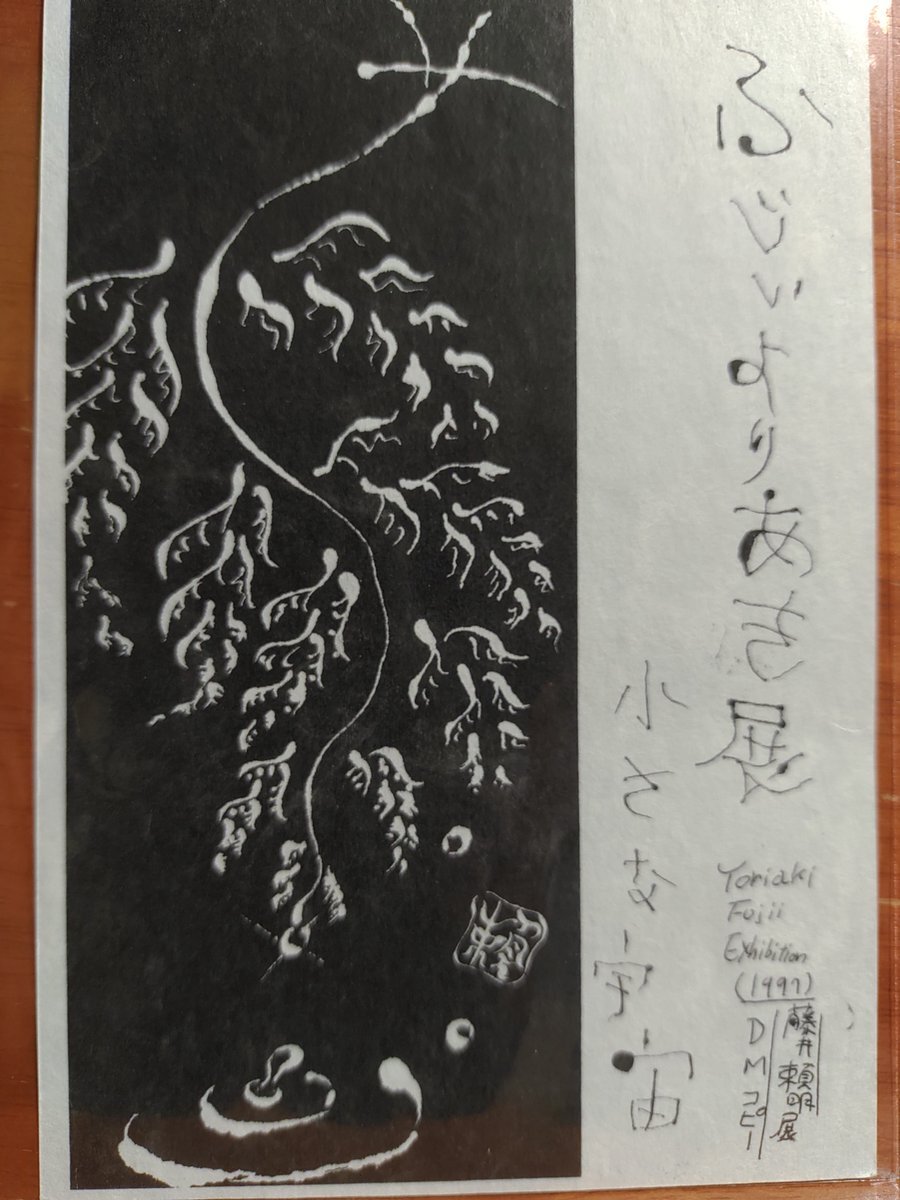 ふじいよりあき展
小さな宇宙
Yoriaki
Fujii
Exhibition
(1997)
藤井頼明展
DMコピー
頼